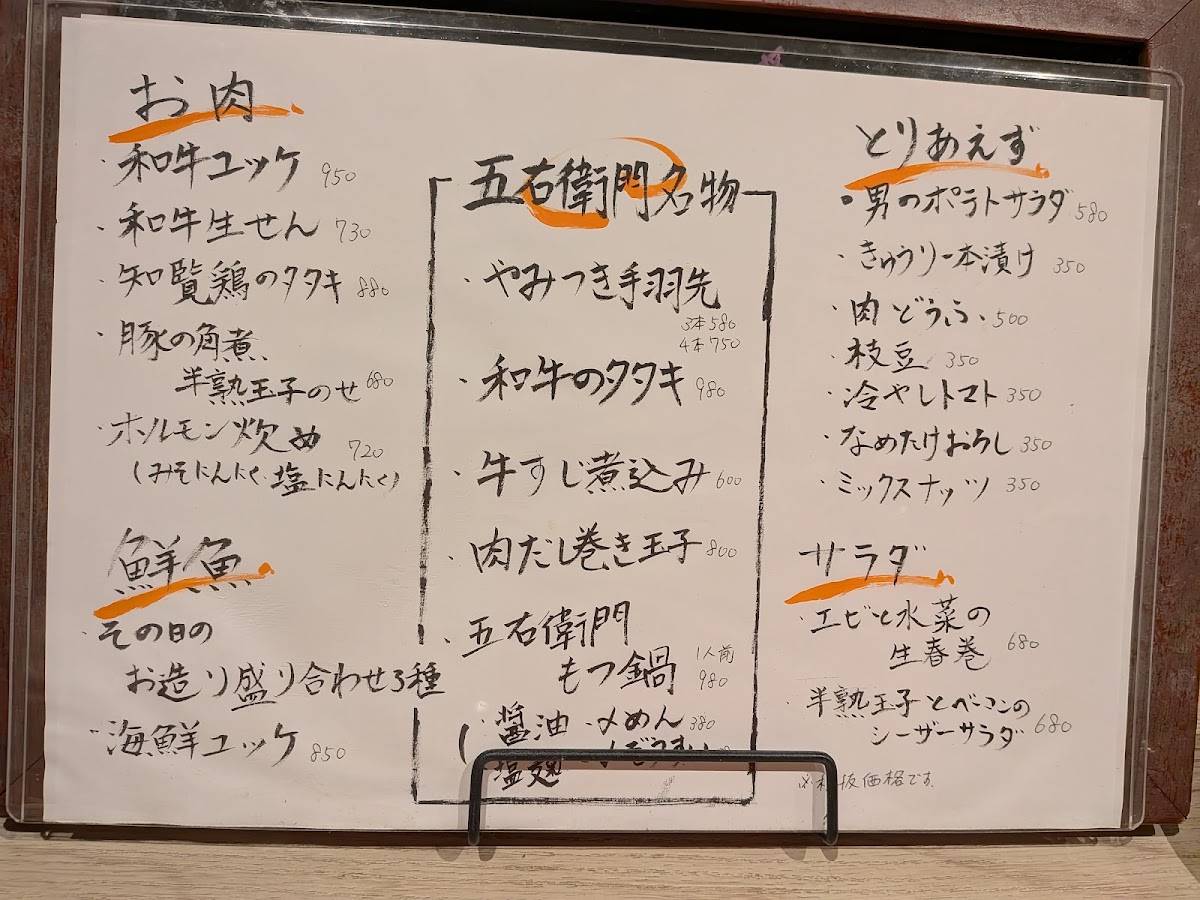 お肉
・和牛ユッケ 950
・和牛生せん 730
・知覧鶏のタタキ 880
・豚の角煮
半熟玉子のせ 680
・ホルモン炊め 720
(みそにんにく・塩にんにく)
鮮魚
・その日の
お造り盛り合わせ3種
・海鮮ユッケ 850
五右衛門名物
・やみつき手羽先
3本580
4本750
・和牛のタタキ 980
・牛すじ煮込み 600
・肉だし巻き玉子 800
・五右衛門
もつ鍋 1人前 980
(・醤油 ・〆めん 380
・塩麹 ・〆ぞうすい
とりあえず
・男のポテトサラダ 580
・きゅうり一本漬け 350
・肉どうふ 500
・枝豆 350
・冷やしトマト 350
・なめたけおろし 350
・ミックスナッツ 350
サラダ
・エビと水菜の
生春巻 680
・半熟玉子とベーコンの
シーザーサラダ 680
※税抜価格です。